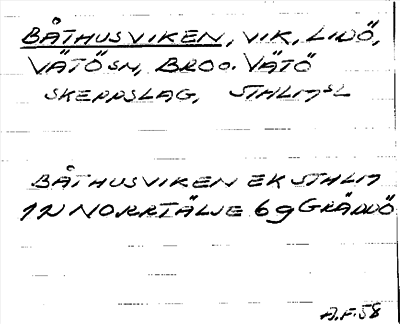 BÅTHUSVIKEN, VIK, LIDÖ,
VÄTÖ SN, BRO O. VÄTÖ
SKEPPSLAG, STHLMS L
BÅTHUSVIKEN EK STHLM
12 NORRTÄLJE 6g GRÄDDÖ
A.F. 58